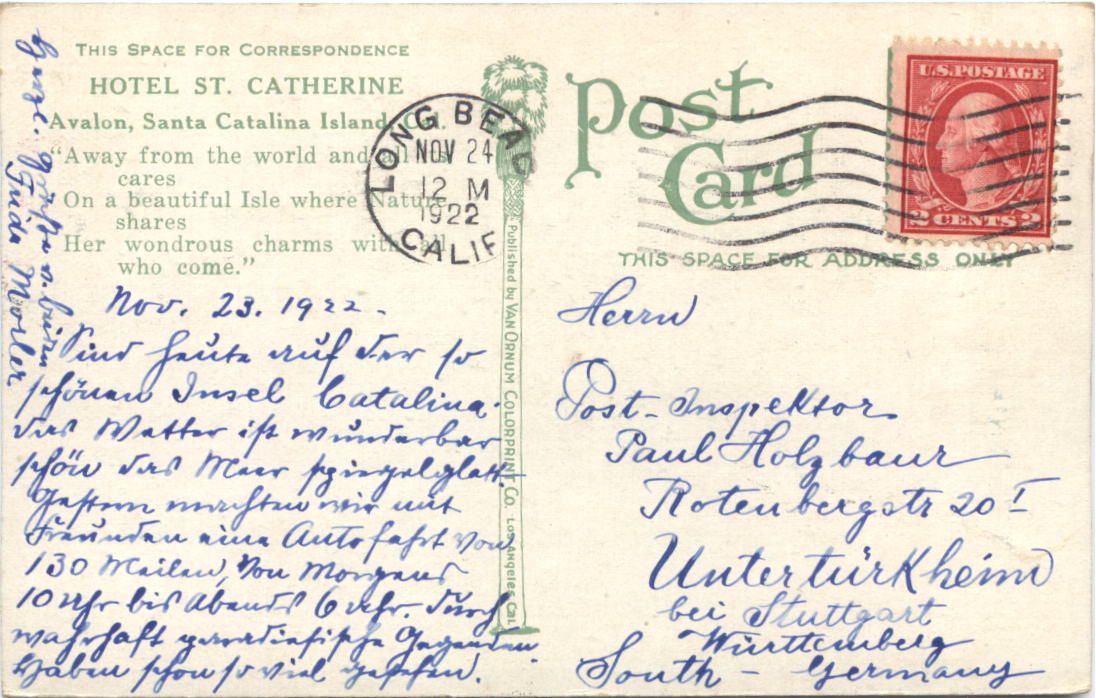 THIS SPACE FOR CORRESPONDENCE
HOTEL ST. CATHERINE
Avalon, Santa Catalina Island,
"Away from the world and
cares
On a beautiful Isle where Nature
shares
Her wondrous charms with all
who come."
Nov. 23. 1922.
Sind heute auf der so
schönen Insel Catalina.
das Wetter ist wunderbar
schön das Meer spiegelglatt.
Gestern machten wir mit
Freunden eine Autofahrt von
130 Meilen, von Morgens
10 Uhr bis Abends 6 Uhr. durch
wahrhaft paradiesische Gegenden.
Haben schon so viel gesehen.
Herzl. Grüße v. beiden
Morler
LONG BEACH
NOV 24
12 M
1922
CALIF
Published by VAN ORNUM COLORPRINT CO. LOS ANGELES CAL.
Post
Card
U.S. POSTAGE
2 CENTS 2
THIS SPACE FOR ADDRESS ONLY
Herrn
Post-Inspektor
Paul Holzbaur
Rotenbergstr 20 I
Untertürkheim
bei Stuttgart
Württemberg
South - Germany